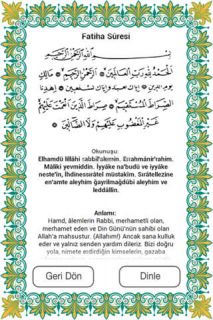 Fatiha Sûresi
بِسْمِ اللّٰهِ الرَّحْمٰنِ الرَّحِيمِ
اَلْحَمْدُ لِلّٰهِ رَبِّ الْعَالَمِينَ ۞ اَلرَّحْمٰنِ الرَّحِيمِ ۞ مَالِكِ
يَوْمِ الدِّينِ ۞ اِيَّاكَ نَعْبُدُ وَاِيَّاكَ نَسْتَعِينُ ۞ اِهْدِنَا
الصِّرَاطَ الْمُسْتَقِيمَ ۞ صِرَاطَ الَّذِينَ اَنْعَمْتَ عَلَيْهِمْ
غَيْرِ الْمَغْضُوبِ عَلَيْهِمْ وَلَا الضَّالِّينَ
Okunuşu:
Elhamdü lillâhi rabbil'alemin. Errahmânir'rahim.
Mâliki yevmiddin. İyyâke na'budü ve iyyâke
neste'în, İhdinessırâtel müstakîm. Sırâtellezîne
en'amte aleyhim ğayrilmağdûbi aleyhim ve
leddâllîn.
Anlamı:
Hamd, âlemlerin Rabbi, merhametli olan,
merhamet eden ve Din Günü'nün sahibi olan
Allah'a mahsustur. (Allahım!) Ancak sana kulluk
eder ve yalnız senden yardım dileriz. Bizi doğru
yola, nimete erdirdiğin kimselerin, gazaba
Geri Dön
Dinle